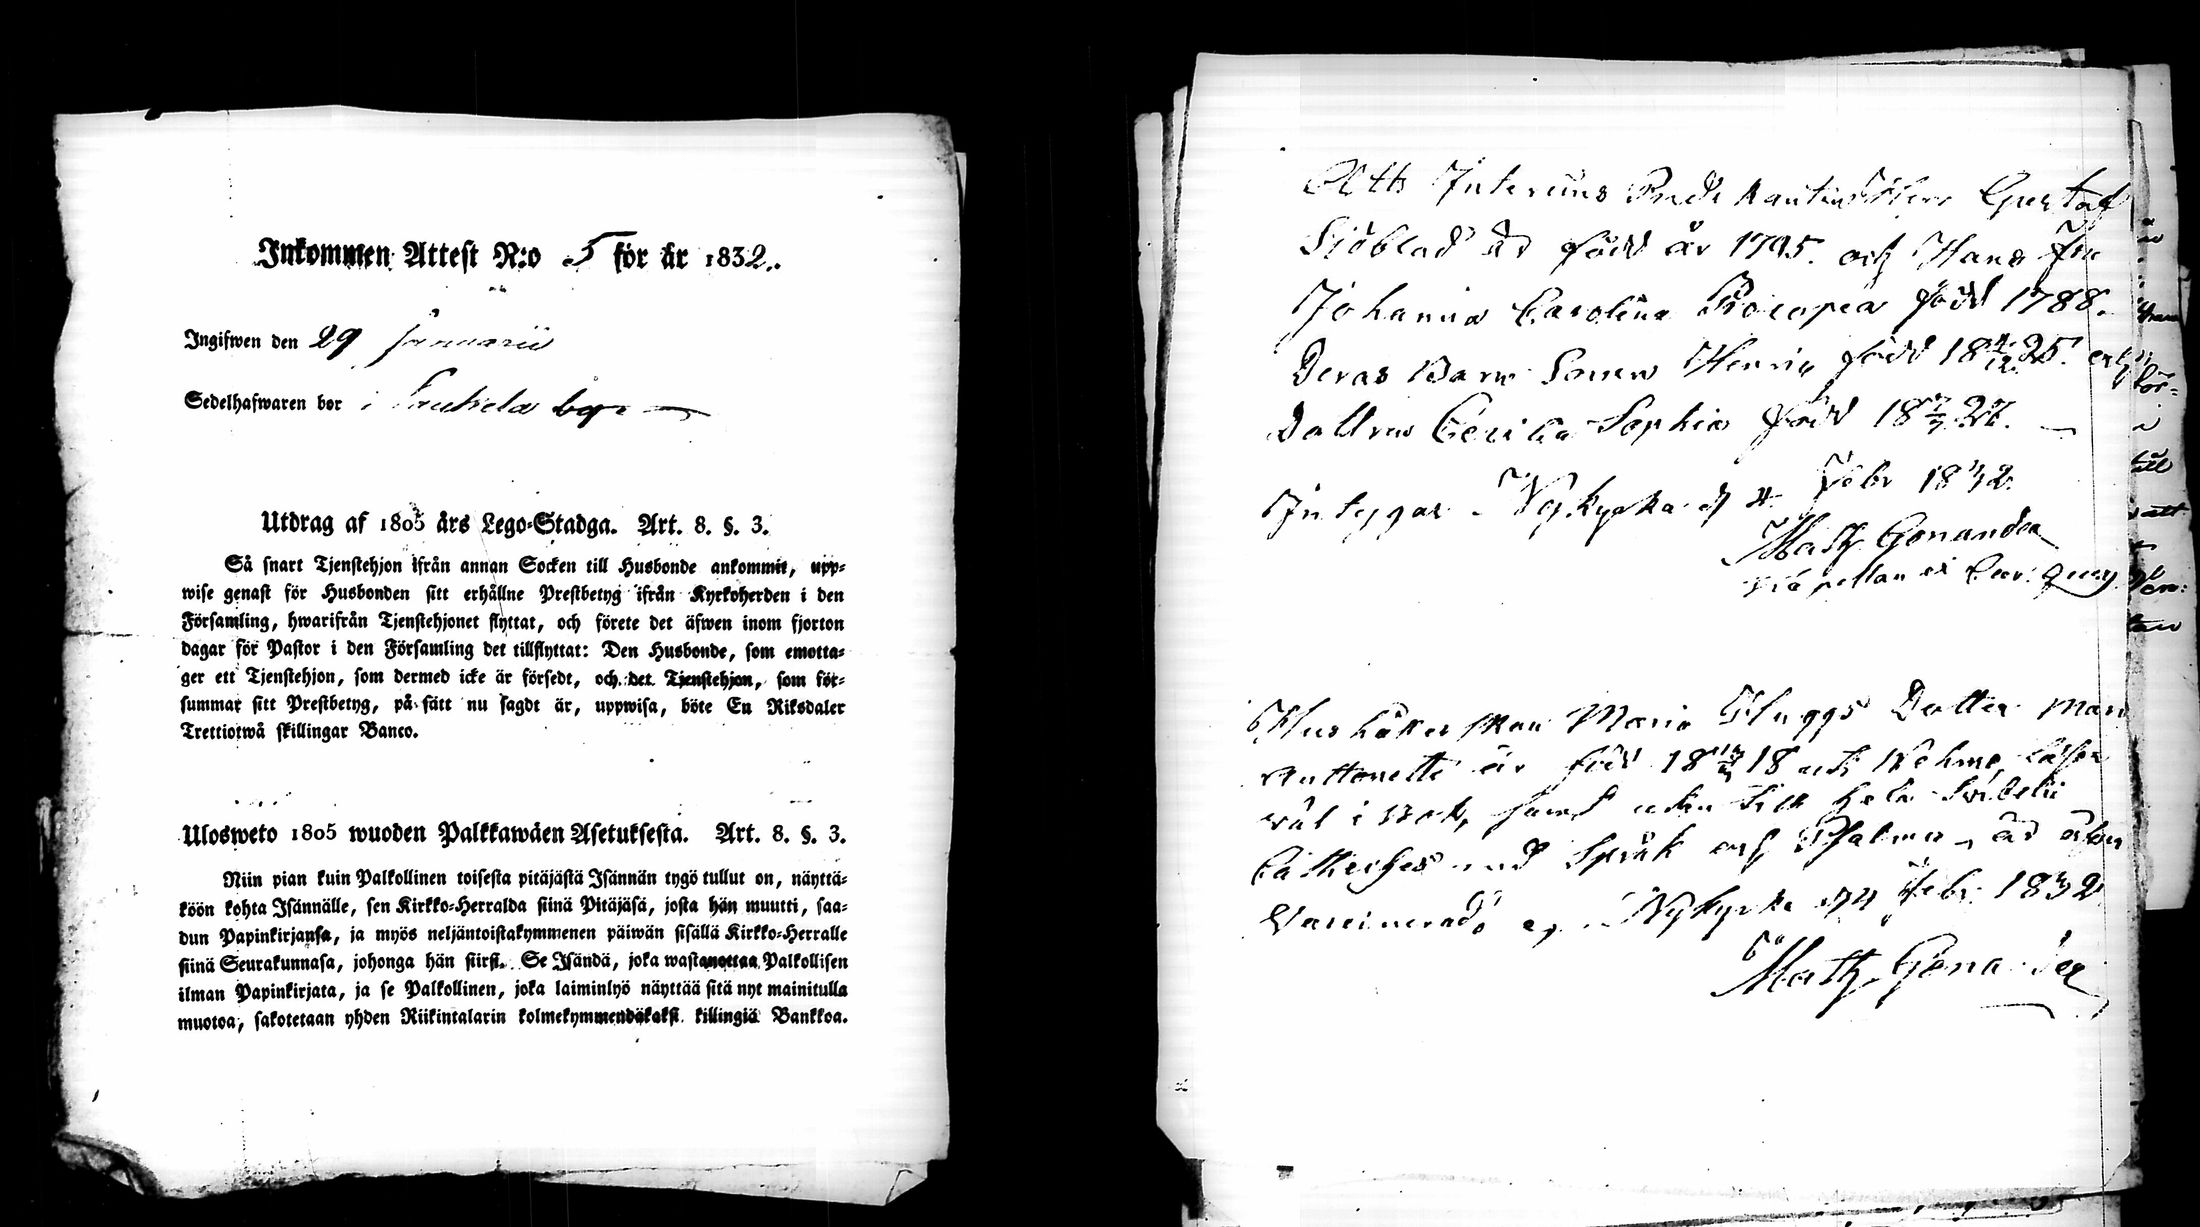 Inkommen Attest N:o 5 för år 1832.
Ingifwen den 29 Januarii
Sedelhafwaren bor i by
Utdrag af 1805 års Lego-Stadga. Art. 8. §. 3.
Så snart Tjenstehjon ifrån annan Socken till Husbonde ankommit, upp-
wise genast för Husbonden sitt erhållne Prestbetyg ifrån Kyrkoherden i den
Församling, hwarifrån Tjenstehjonet flyttat, och förete det äfwen inom fjorton
dagar för Pastor i den Församling det tillflyttat: Den Husbonde, som emotta-
ger ett Tjenstehjon, som dermed icke är försedt, och det Tjenstehjon, som för-
summar sitt Prestbetyg, på sätt nu sagdt är, uppwisa, böte En Riksdaler
Trettiotwå skillingar Banco.
Ulosweto 1805 wuoden Palkkawäen Asetuksesta. Art. 8. §. 3.
Niin pian kuin Palkollinen toisesta pitäjästä Isännän tygö tullut on, näyttä-
köön kohta Isännälle, sen Kirkko-Herralda siinä Pitäjäsä, josta hän muutti, saa-
dun Papinkirjansa, ja myös neljäntoistakymmenen päiwän sisällä Kirkko-Herralle
siinä Seurakunnasa, johonga hän siirsi. Se Isändä, joka wastanottaa Palkollisen
ilman Papinkirjata, ja se Palkollinen, joka laiminlyö näyttää sitä nyt mainitulla
muotoa, sakotetaan yhden Riikintalarin kolmekymmendäkaksi killingiä Bankkoa.
Att Interims Predikanten Herr Gustaf
Sjöblad är född år 1795. och Hans Fru
Johanna Carolina född 1788.
Deras Barn Sonen Henric född 18 25. och
Dottren Cecilia Sophia född 18
Intygar Nykyrka d 4 Febr 1832.
Math Gonander
Kapellan
Maria Dotter
är född 18 18
väl i Bok, samt utan
med Språk och Psalmer, är äfven
Vaccinerad. Nykyrka d 4 Febr. 1832
Math. Gonander